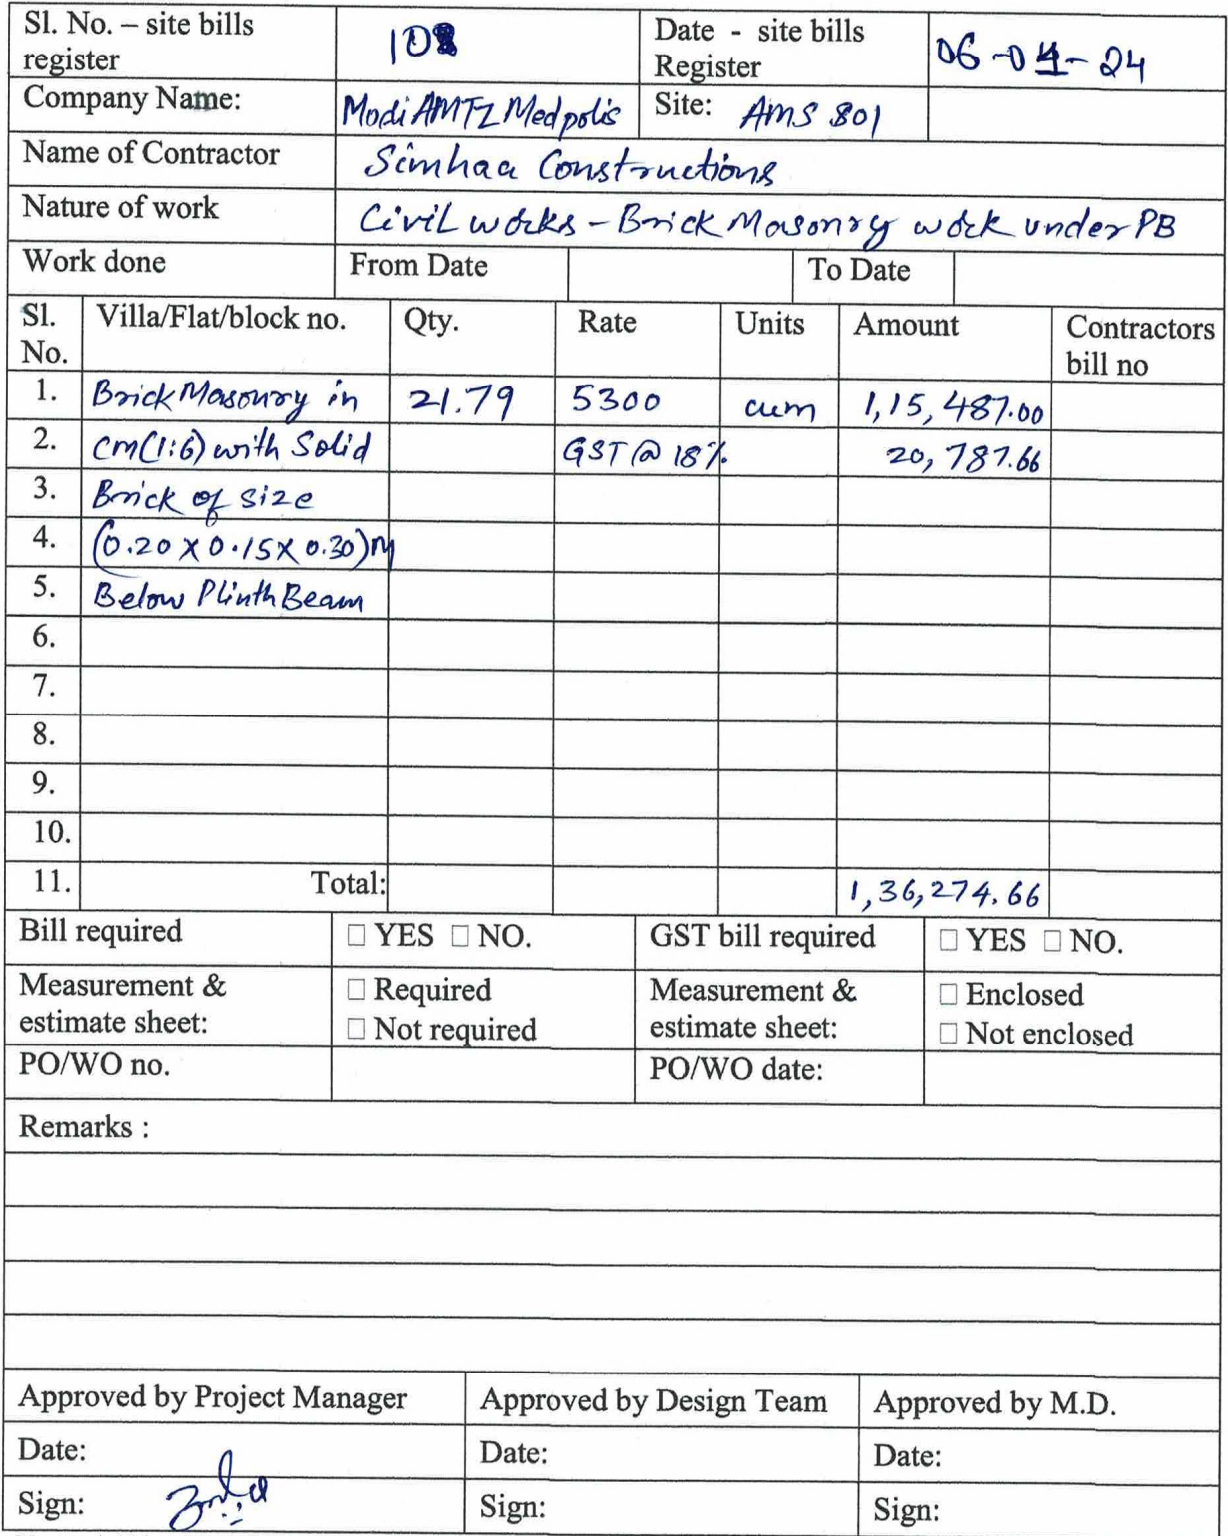 Sl. No. – site bills register 108 Date - site bills Register 06-04-24
Company Name: Modi AMTZ Medpolis Site: AMS 801
Name of Contractor Simhaa Constructions
Nature of work Civil works - Brick Masonry work under PB
Work done From Date To Date
Sl. No. Villa/Flat/block no. Qty. Rate Units Amount Contractors bill no
1. Brick Masonry in 21.79 5300 cum 1,15,487.00
2. cm(1:6) with Solid GST @ 18% 20,787.66
3. Brick of size
4. (0.20 x 0.15 x 0.30)M
5. Below Plinth Beam
6.
7.
8.
9.
10.
11. Total: 1,36,274.66
Bill required □ YES □ NO. GST bill required □ YES □ NO.
Measurement & estimate sheet: □ Required □ Not required Measurement & estimate sheet: □ Enclosed □ Not enclosed
PO/WO no. PO/WO date:
Remarks :
Approved by Project Manager Approved by Design Team Approved by M.D.
Date: Date: Date:
Sign: Sign: Sign: